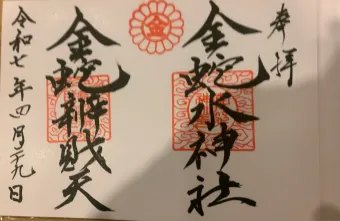 奉拝
金蛇水神社
金
金蛇辨財天
令和七年四月二十九日